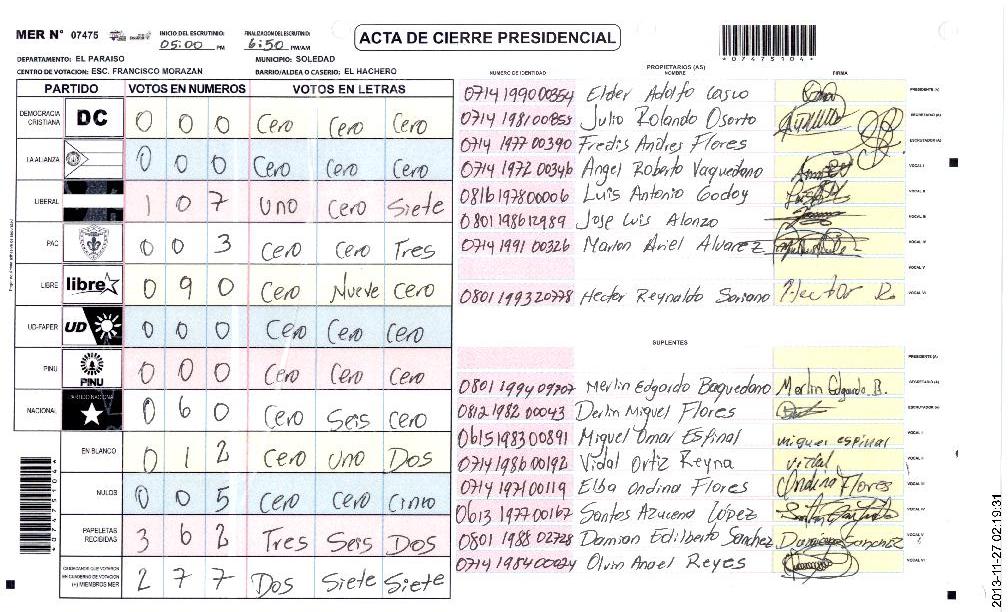 MER N° 07475
INICIO DEL ESCRUTINIO: 05:00 PM
FINALIZACION DEL ESCRUTINIO: 6:50 PM/AM
ACTA DE CIERRE PRESIDENCIAL
*07475104*
DEPARTAMENTO: EL PARAISO MUNICIPIO: SOLEDAD
CENTRO DE VOTACION: ESC. FRANCISCO MORAZAN BARRIO/ALDEA O CASERIO: EL HACHERO
PARTIDO VOTOS EN NUMEROS VOTOS EN LETRAS
DEMOCRACIA CRISTIANA DC 0 0 0 Cero Cero Cero
LA ALIANZA 0 0 0 Cero Cero Cero
LIBERAL 1 0 7 Uno Cero Siete
PAC 0 0 3 Cero Cero Tres
LIBRE libre 0 9 0 Cero Nueve Cero
UD-FAPER UD 0 0 0 Cero Cero Cero
PINU PINU 0 0 0 Cero Cero Cero
NACIONAL PARTIDO NACIONAL 0 6 0 Cero Seis Cero
EN BLANCO 0 1 2 Cero Uno Dos
NULOS 0 0 5 Cero Cero Cinco
PAPELETAS RECIBIDAS 3 6 2 Tres Seis Dos
CIUDADANOS QUE VOTARON EN CUADERNO DE VOTACION (+) MIEMBROS MER 2 7 7 Dos Siete Siete
*07475104*
PROPIETARIOS (AS)
NUMERO DE IDENTIDAD NOMBRE FIRMA
0714 1990 00354 Elder Adolfo Casco PRESIDENTE (A)
0714 1981 00853 Julio Rolando Osorto SECRETARIO (A)
0714 1977 00390 Fredis Andres Flores ESCRUTADOR (A)
0714 1972 00346 Angel Roberto Vaquedano VOCAL I
0816 1978 00006 Luis Antonio Godoy VOCAL II
0801 1986 12989 Jose Luis Alonzo VOCAL III
0714 1991 00326 Marlon Ariel Alvarez VOCAL IV
VOCAL V
0801 1993 20778 Hector Reynaldo Soriano Hector R. VOCAL VI
SUPLENTES
PRESIDENTE (A)
0801 1994 09707 Merlin Edgardo Baquedano Merlin Edgardo B. SECRETARIO (A)
0812 1982 00043 Derlin Miguel Flores ESCRUTADOR (A)
0615 1983 00891 Miguel Omar Espinal miguel espinal VOCAL I
0714 1986 00192 Vidal Ortiz Reyna vidal VOCAL II
0714 1971 00119 Elba Ondina Flores Ondina Flores VOCAL III
0613 1977 00167 Santos Azucena López VOCAL IV
0801 1988 02728 Damion Edilberto Sanchez VOCAL V
0714 1984 00024 Olvin Anael Reyes VOCAL VI
2013-11-27 02:19:31